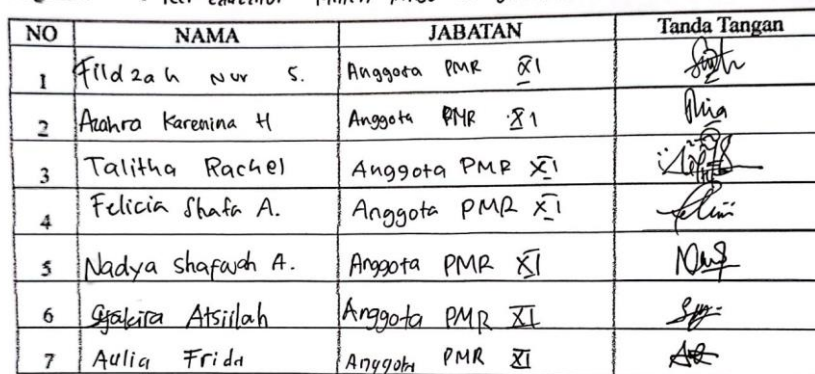 NO NAMA JABATAN Tanda Tangan
1 Fildzah Nur S. Anggota PMR XI
2 Azahra Karenina H Anggota PMR XI
3 Talitha Rachel Anggota PMR XI
4 Felicia Shafa A. Anggota PMR XI
5 Nadya shafawah A. Anggota PMR XI
6 Syakira Atsiilah Anggota PMR XI
7 Aulia Frida Anggota PMR XI